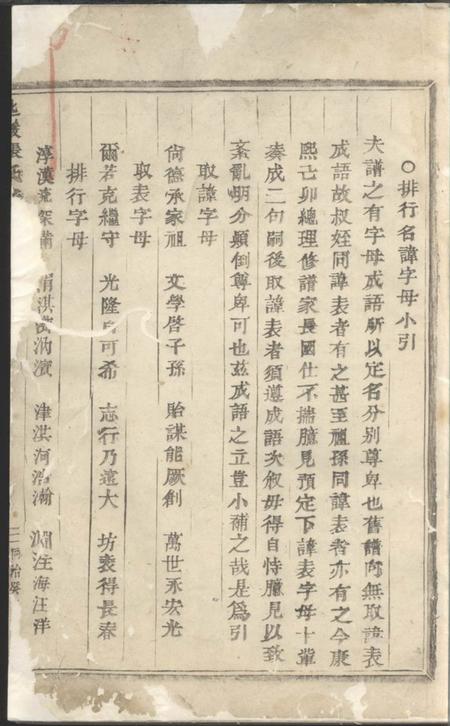 ○排行名諱字母小引
夫譜之有字母成語所以定名分別尊卑也舊譜向無取諱表
成語故叔姪同諱表者有之甚至祖孫同諱表者亦有之今康
熙己卯總理修譜家長國仕不揣臆見預定下諱表字母十輩
湊成二句嗣後取諱表者須遵成語次叙毋得自恃臆見以致
紊亂明分顛倒尊卑可也茲成語之立豈小補之哉是爲引
取諱字母
尙德承家祖 文學啓子孫 貽謀能厥創 萬世永宏光
取表字母
爾若克繼守 光隆 可希 志行乃遠大 坊表得長春
排行字母
淳漢 淇 汭濱 津淇河浩瀚 汪海汪洋